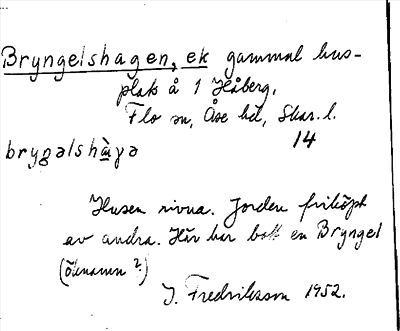 Bryngelshagen, ek gammal hus-
plats å 1 Håberg,
Flo sn, Åse hd, Skar. l.
14
bryŋəlshàɡa
Husen rivna. Jorden friköpt
av andra. Här har bott en Bryngel
(öknamn?)
J. Fredriksson 1952.